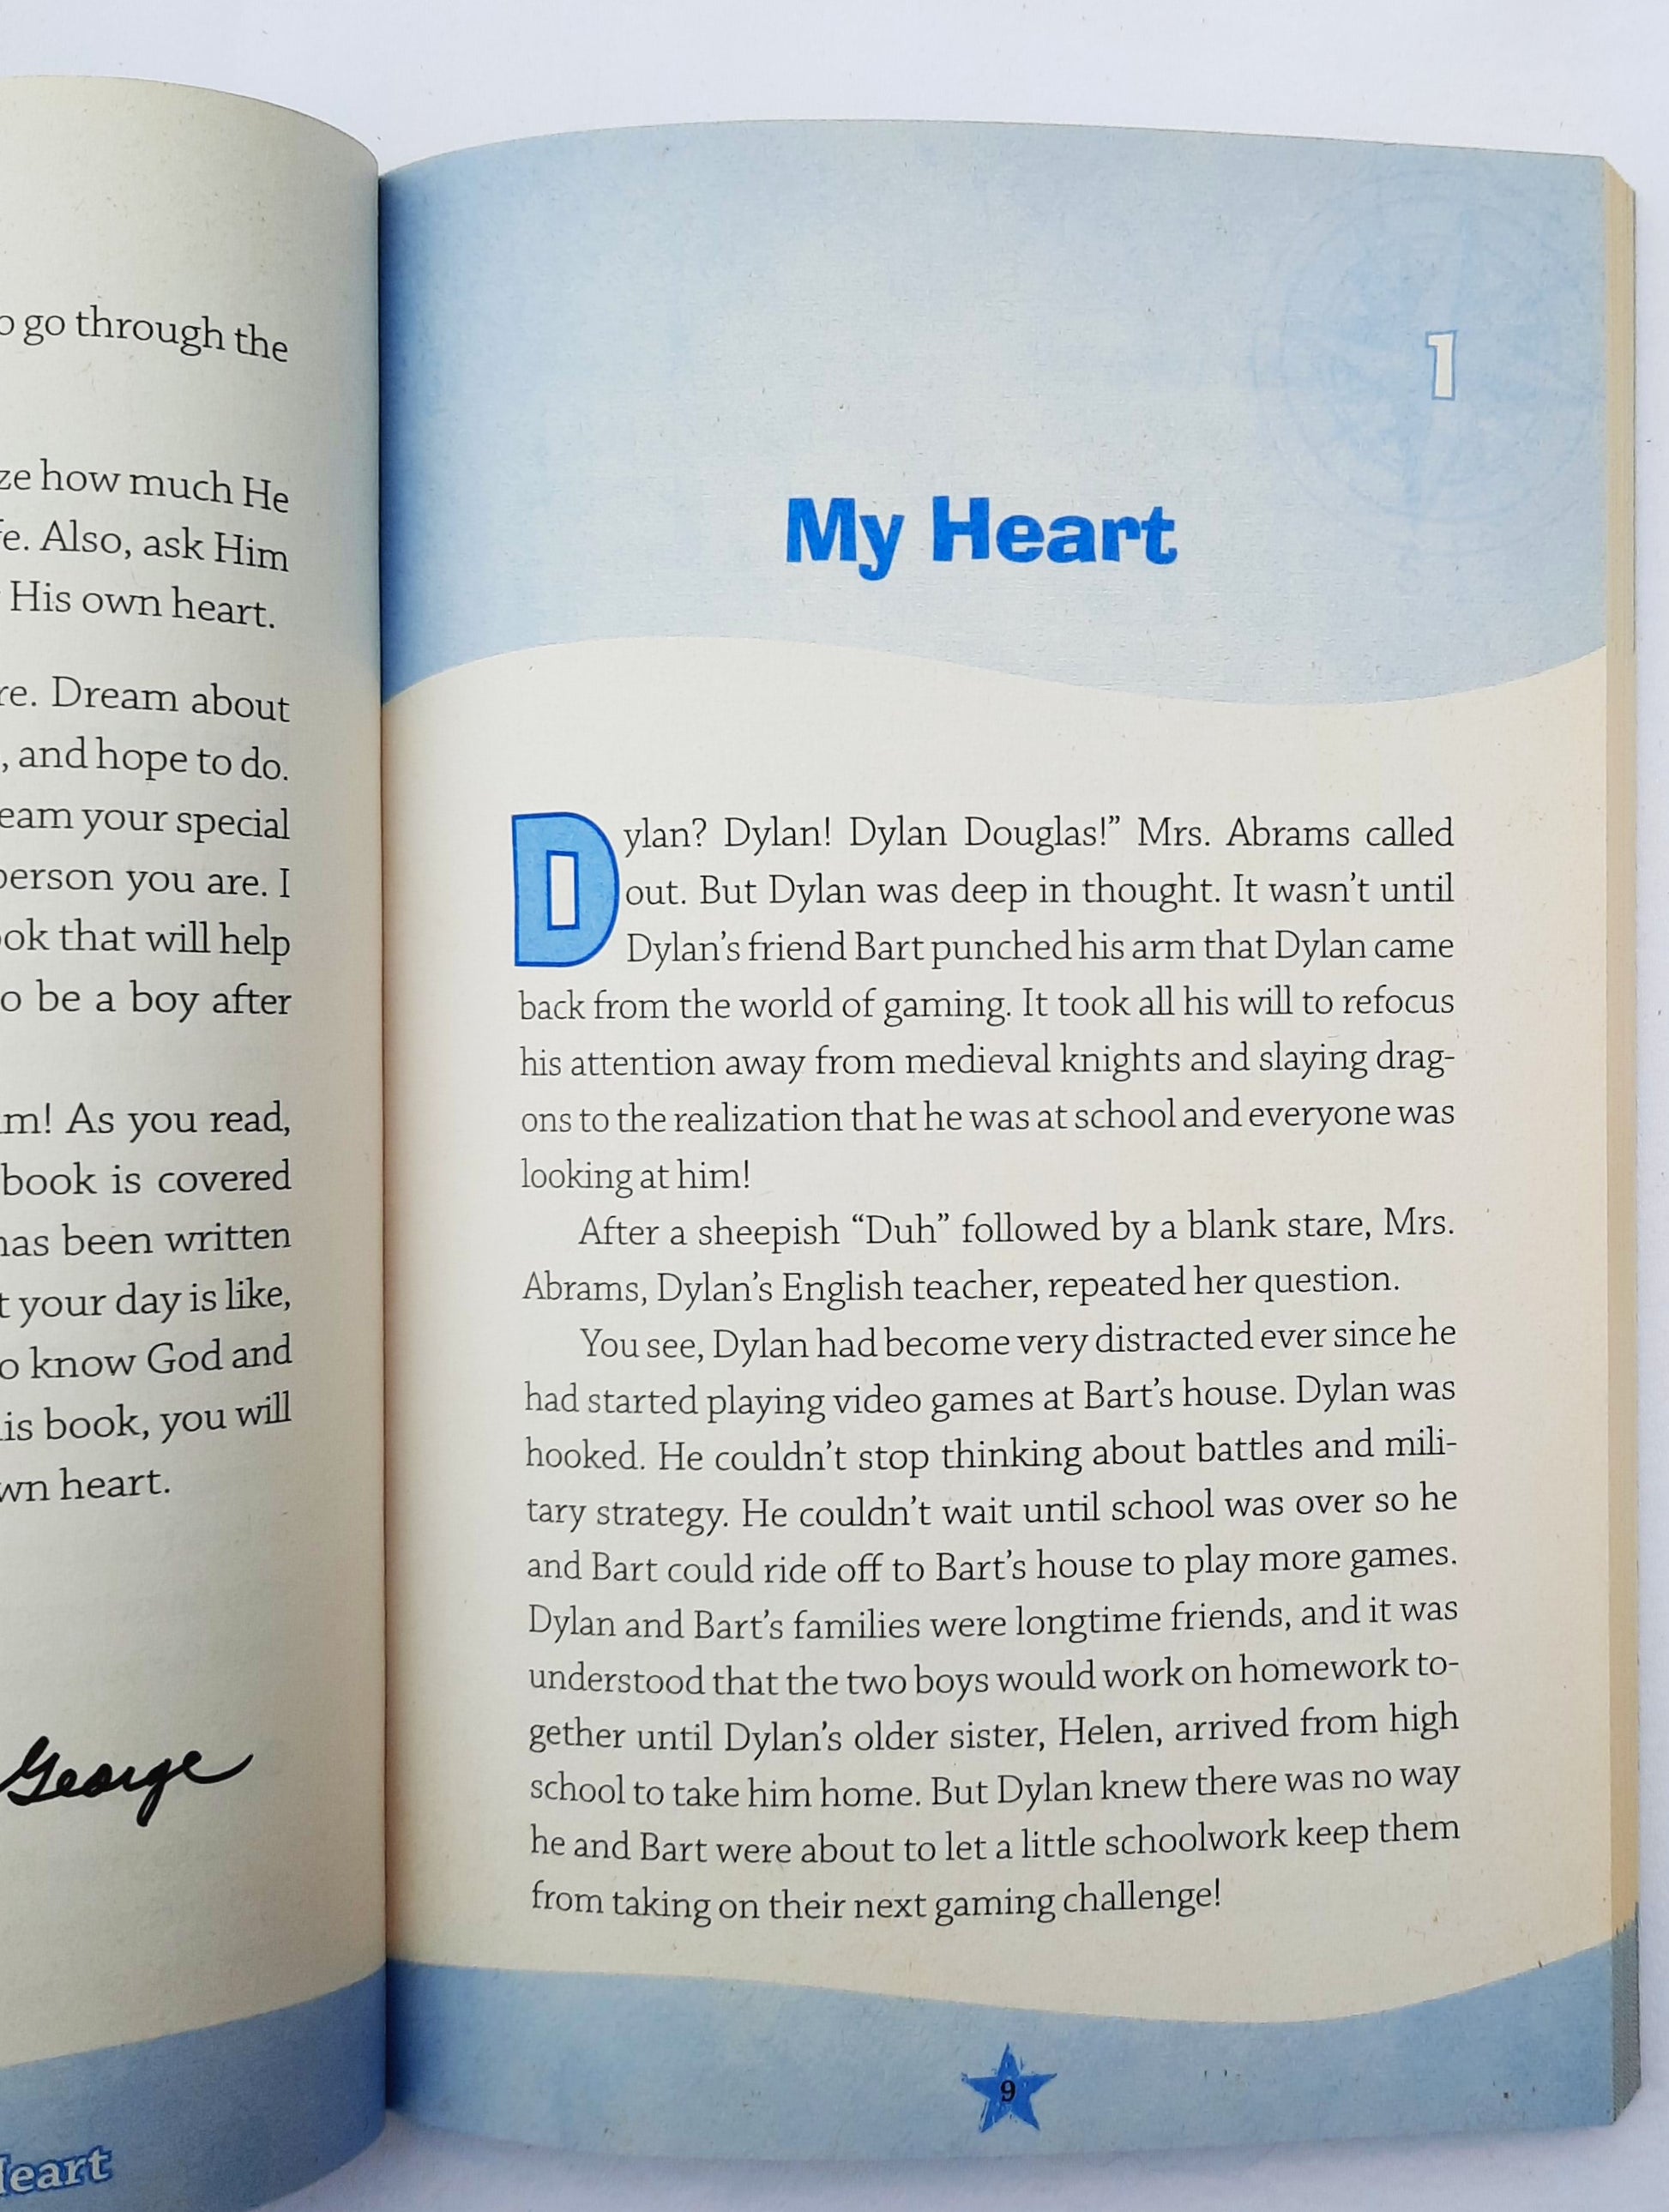 go through the
how much He
Also, ask Him
His own heart.
Dream about
, and hope to do.
your special
person you are. I
that will help
be a boy after
As you read,
book is covered
has been written
your day is like,
know God and
book, you will
heart.
George
Heart
1
My Heart
Dylan? Dylan! Dylan Douglas!” Mrs. Abrams called
out. But Dylan was deep in thought. It wasn’t until
Dylan’s friend Bart punched his arm that Dylan came
back from the world of gaming. It took all his will to refocus
his attention away from medieval knights and slaying drag-
ons to the realization that he was at school and everyone was
looking at him!
After a sheepish “Duh” followed by a blank stare, Mrs.
Abrams, Dylan’s English teacher, repeated her question.
You see, Dylan had become very distracted ever since he
had started playing video games at Bart’s house. Dylan was
hooked. He couldn’t stop thinking about battles and mili-
tary strategy. He couldn’t wait until school was over so he
and Bart could ride off to Bart’s house to play more games.
Dylan and Bart’s families were longtime friends, and it was
understood that the two boys would work on homework to-
gether until Dylan’s older sister, Helen, arrived from high
school to take him home. But Dylan knew there was no way
he and Bart were about to let a little schoolwork keep them
from taking on their next gaming challenge!
9